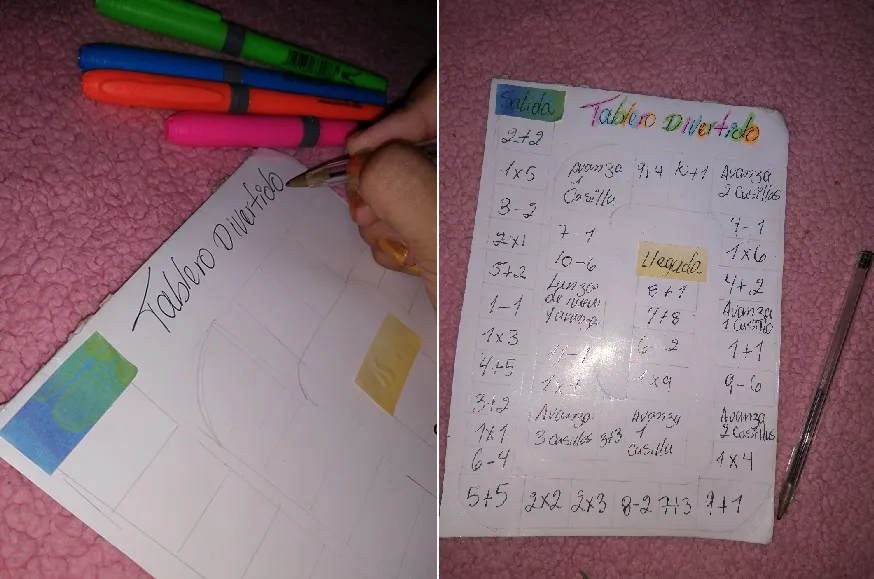 Tablero Divertido
Salida
Tablero Divertido
2+2
1x5
3-2
2x1
5+2
1-1
1x3
4+5
3+2
1x1
6-4
5+5
2x2
2x3
8-2
7+3
9+1
1x4
Avanza
2 casillas
9-6
1+1
Avanza
1 casilla
4+2
1x6
Avanza
2 casillas
Avanza
1
Casilla
7-1
10-6
de nuevo
Avanza
3 casillas
3+3
Avanza
1
casilla
1x9
7+8
8+1
Llegada